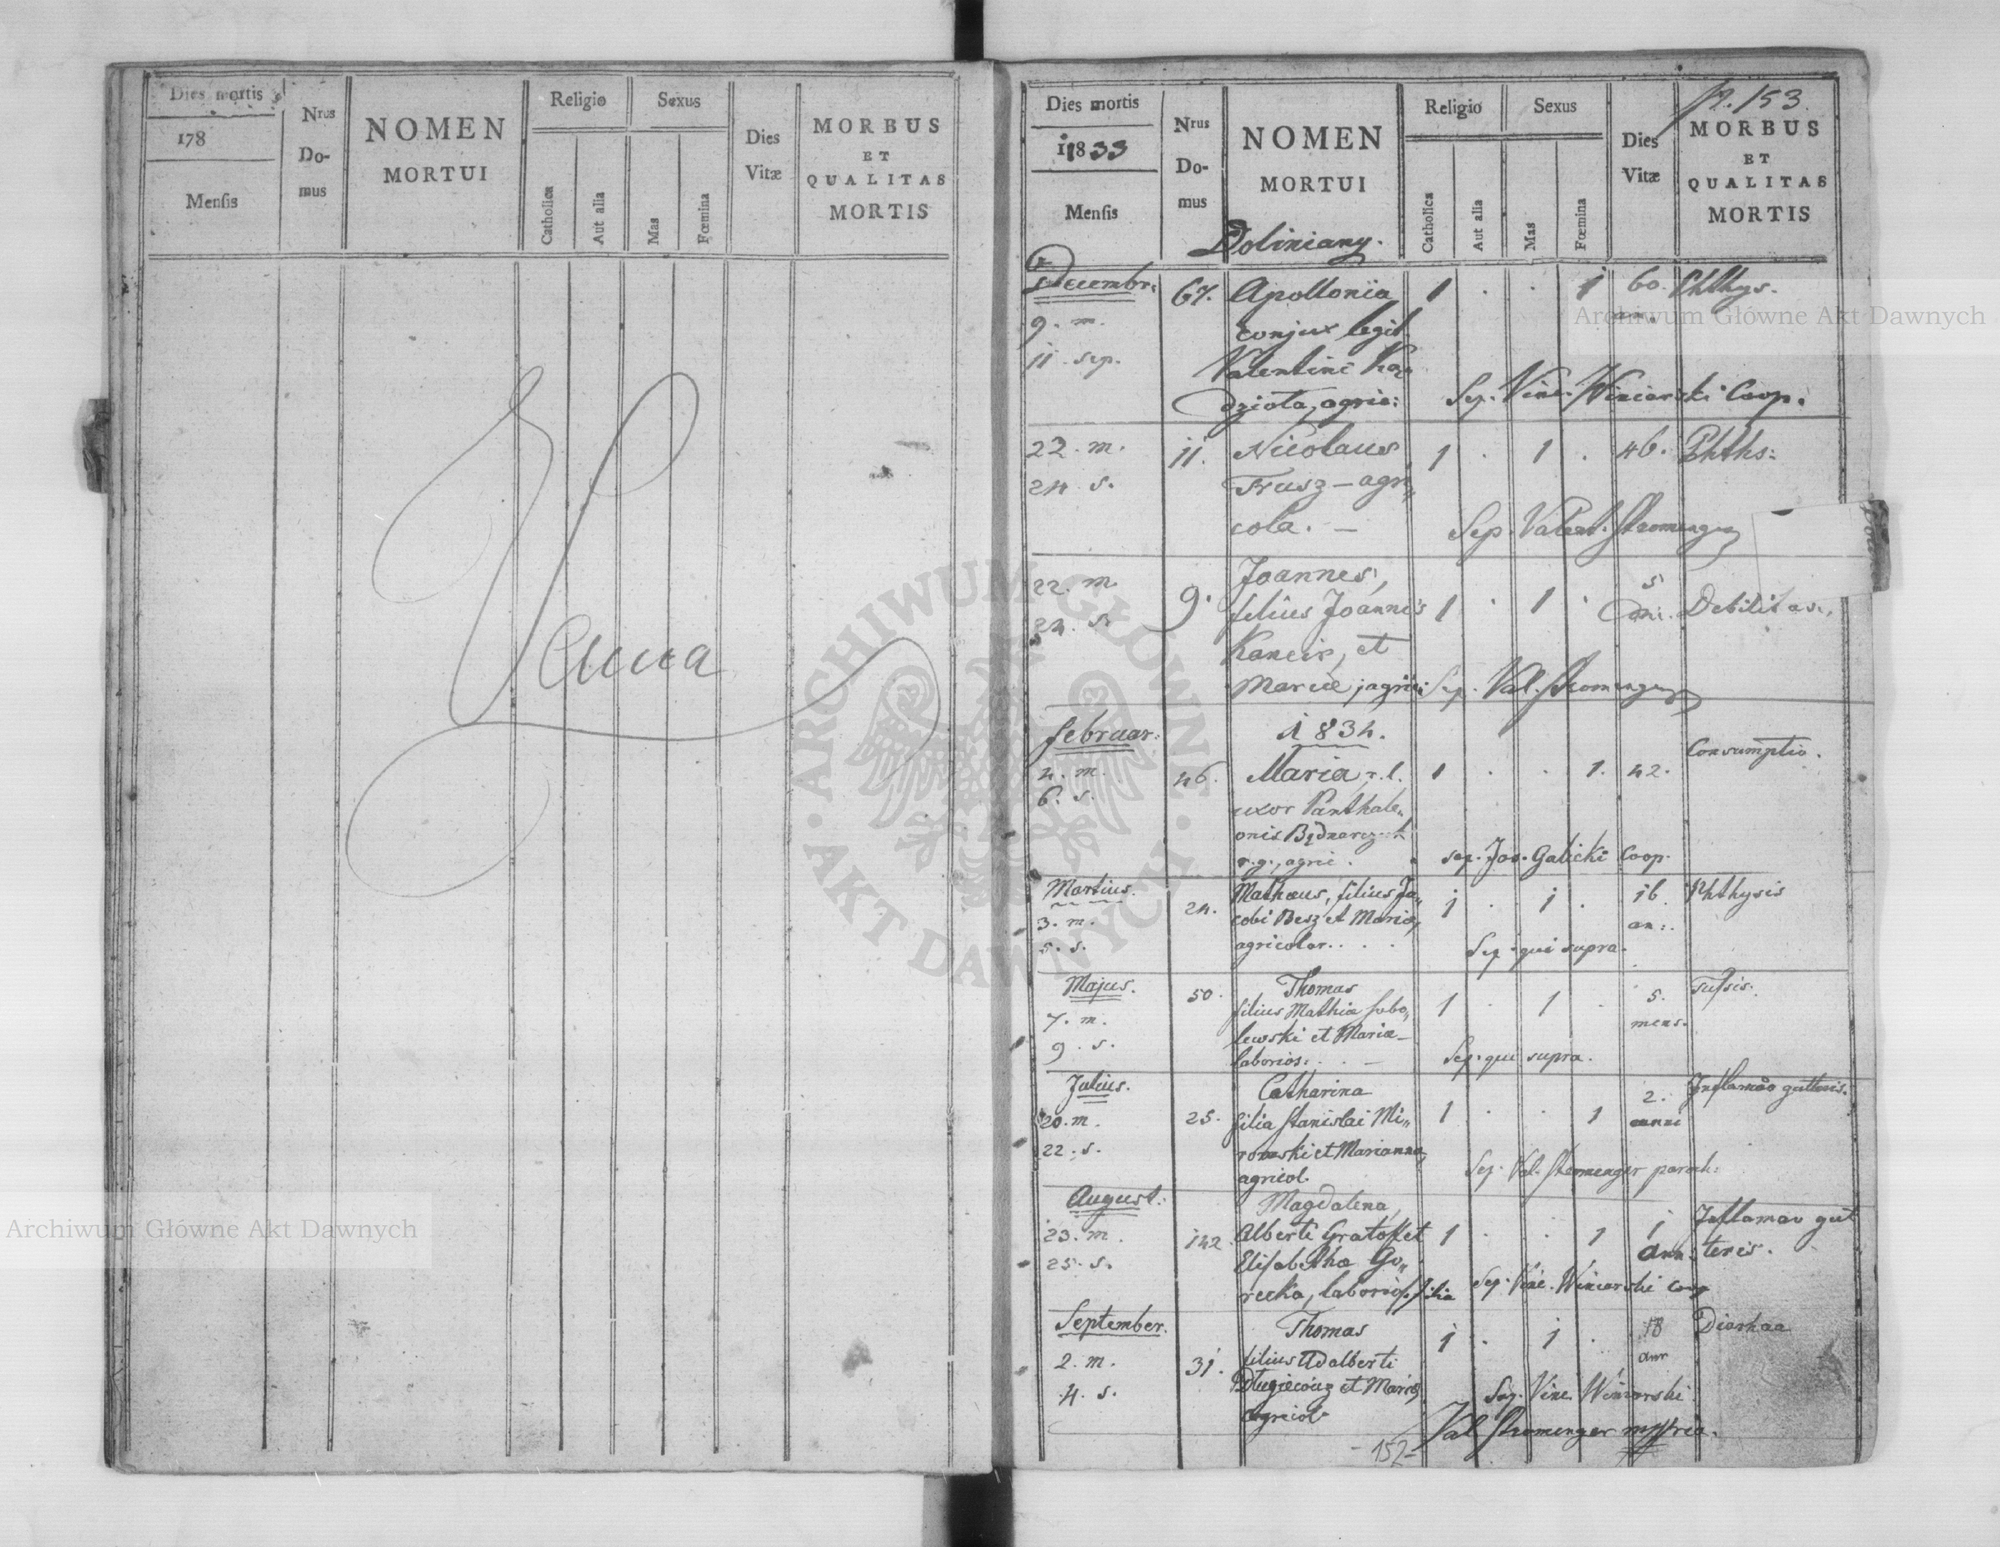 Dies mortis
178
Mensis
Nrus
Do-
mus
NOMEN
MORTUI
Religio
Catholica
Aut alia
Sexus
Mas
Fœmina
Dies
Vitæ
MORBUS
ET
QUALITAS
MORTIS
p. 153.
Dies mortis
1833
Mensis
Nrus
Do-
mus
NOMEN
MORTUI
Doliniany.
Religio
Catholica
Aut alia
Sexus
Mas
Fœmina
Dies
Vitæ
MORBUS
ET
QUALITAS
MORTIS
Decembr: 67. Apollonia 1 . . 1 60. Phthys.
9. m. conjux legit. an.
11. sep. Valentini
agric: Sep. Vinc. Winiarski Coop.
22. m. 11. Nicolaus 1 . 1 . 46. Phths:
24. s. Frusz – agri„
cola. – Sep. Valent. Stromenger
22. m. 9. Joannes, 1 . 1 . 5
24. s. filius Joannis Debilitas.
et
Mariæ, agric: Sep. Val. Stromenger
Februar: 1834. Consumptio.
4. m. 46. Maria, r. l. 1 . . 1. 42.
6. s. uxor Panthale„
onis
r. g., agric. sep. Jos. Galicki Coop.
Martius. 24. Mathæus, filius Ja„ 1 . 1 . 16 Phthysis
3. m. cobi Besz et Mariæ, an:.
5. s. agricolar. . . . Sep. qui supra.
Majus. 50. Thomas 1 . 1 . 5. Tussis.
7. m. filius Mathiæ Sobo„ mens.
9. s. lewski et Mariæ
laborios: . . – Sep. qui supra.
Julius. Catharina 2. Inflamao gutteris.
20. m. 25. filia Stanislai Mi„ 1 . . 1 anni
22. s. rowski et Marianna,
agricol. Sep. Val. Stromenger paroch:
August: Magdalena, Inflamao gut
23. m. 142 Alberti 1 . . 1 1 teris.
25. s. Elisabetha Go„ ann:
recka, laborios. filia Sep. Vinc. Winiarski Coop
September. Thomas 1 . 1 . 18 Diarhaa
2. m. 31. filius Adalberti ann
4. s. Długiewicz et Mariæ, Sep. Vinc. Winiarski
agricol.
Val Stromenger mppria.
- 152 -
Archiwum Główne Akt Dawnych
Archiwum Główne Akt Dawnych
· ARCHIWUM GŁÓWNE · AKT DAWNYCH